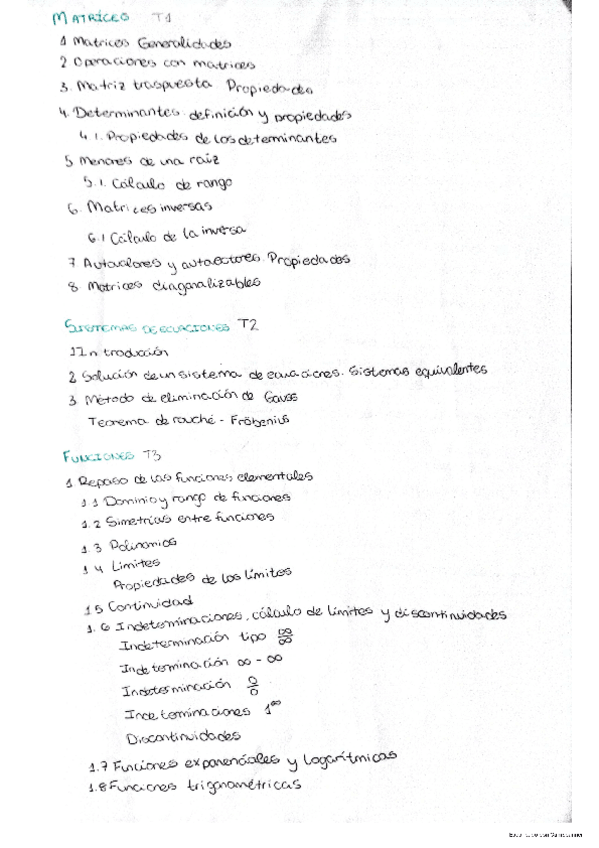 MATRICES T1
1 Matrices Generalidades
2 Operaciones con matrices
3. Matriz traspuesta Propiedades
4. Determinantes. definición y propiedades
4.1. Propiedades de los determinantes
5 Menores de una raiz
5.1. Cálculo de rango
6. Matrices inversas
6.1 Cálculo de la inversa
7. Autovalores y autovectores. Propiedades
8. Matrices diagonalizables
SISTEMAS DE ECUACIONES T2
1 Introducción
2 Solución de un sistema de ecuaciones. Sistemas equivalentes
3 Método de eliminación de Gauss
Teorema de rouché - Fröbenius
FUNCIONES T3
1 Repaso de las funciones elementales
1.1 Dominio y rango de funciones
1.2 Simetrías entre funciones
1.3 Polinomios
1.4 Límites
Propiedades de los límites
1.5 Continuidad
1.6 Indeterminaciones, cálculo de límites y discontinuidades
Indeterminación tipo ∞/∞
Indeterminación ∞ - ∞
Indeterminación 0/0
Indeterminaciones 1^∞
Discontinuidades
1.7 Funciones exponenciales y logarítmicas
1.8 Funciones trigonométricas